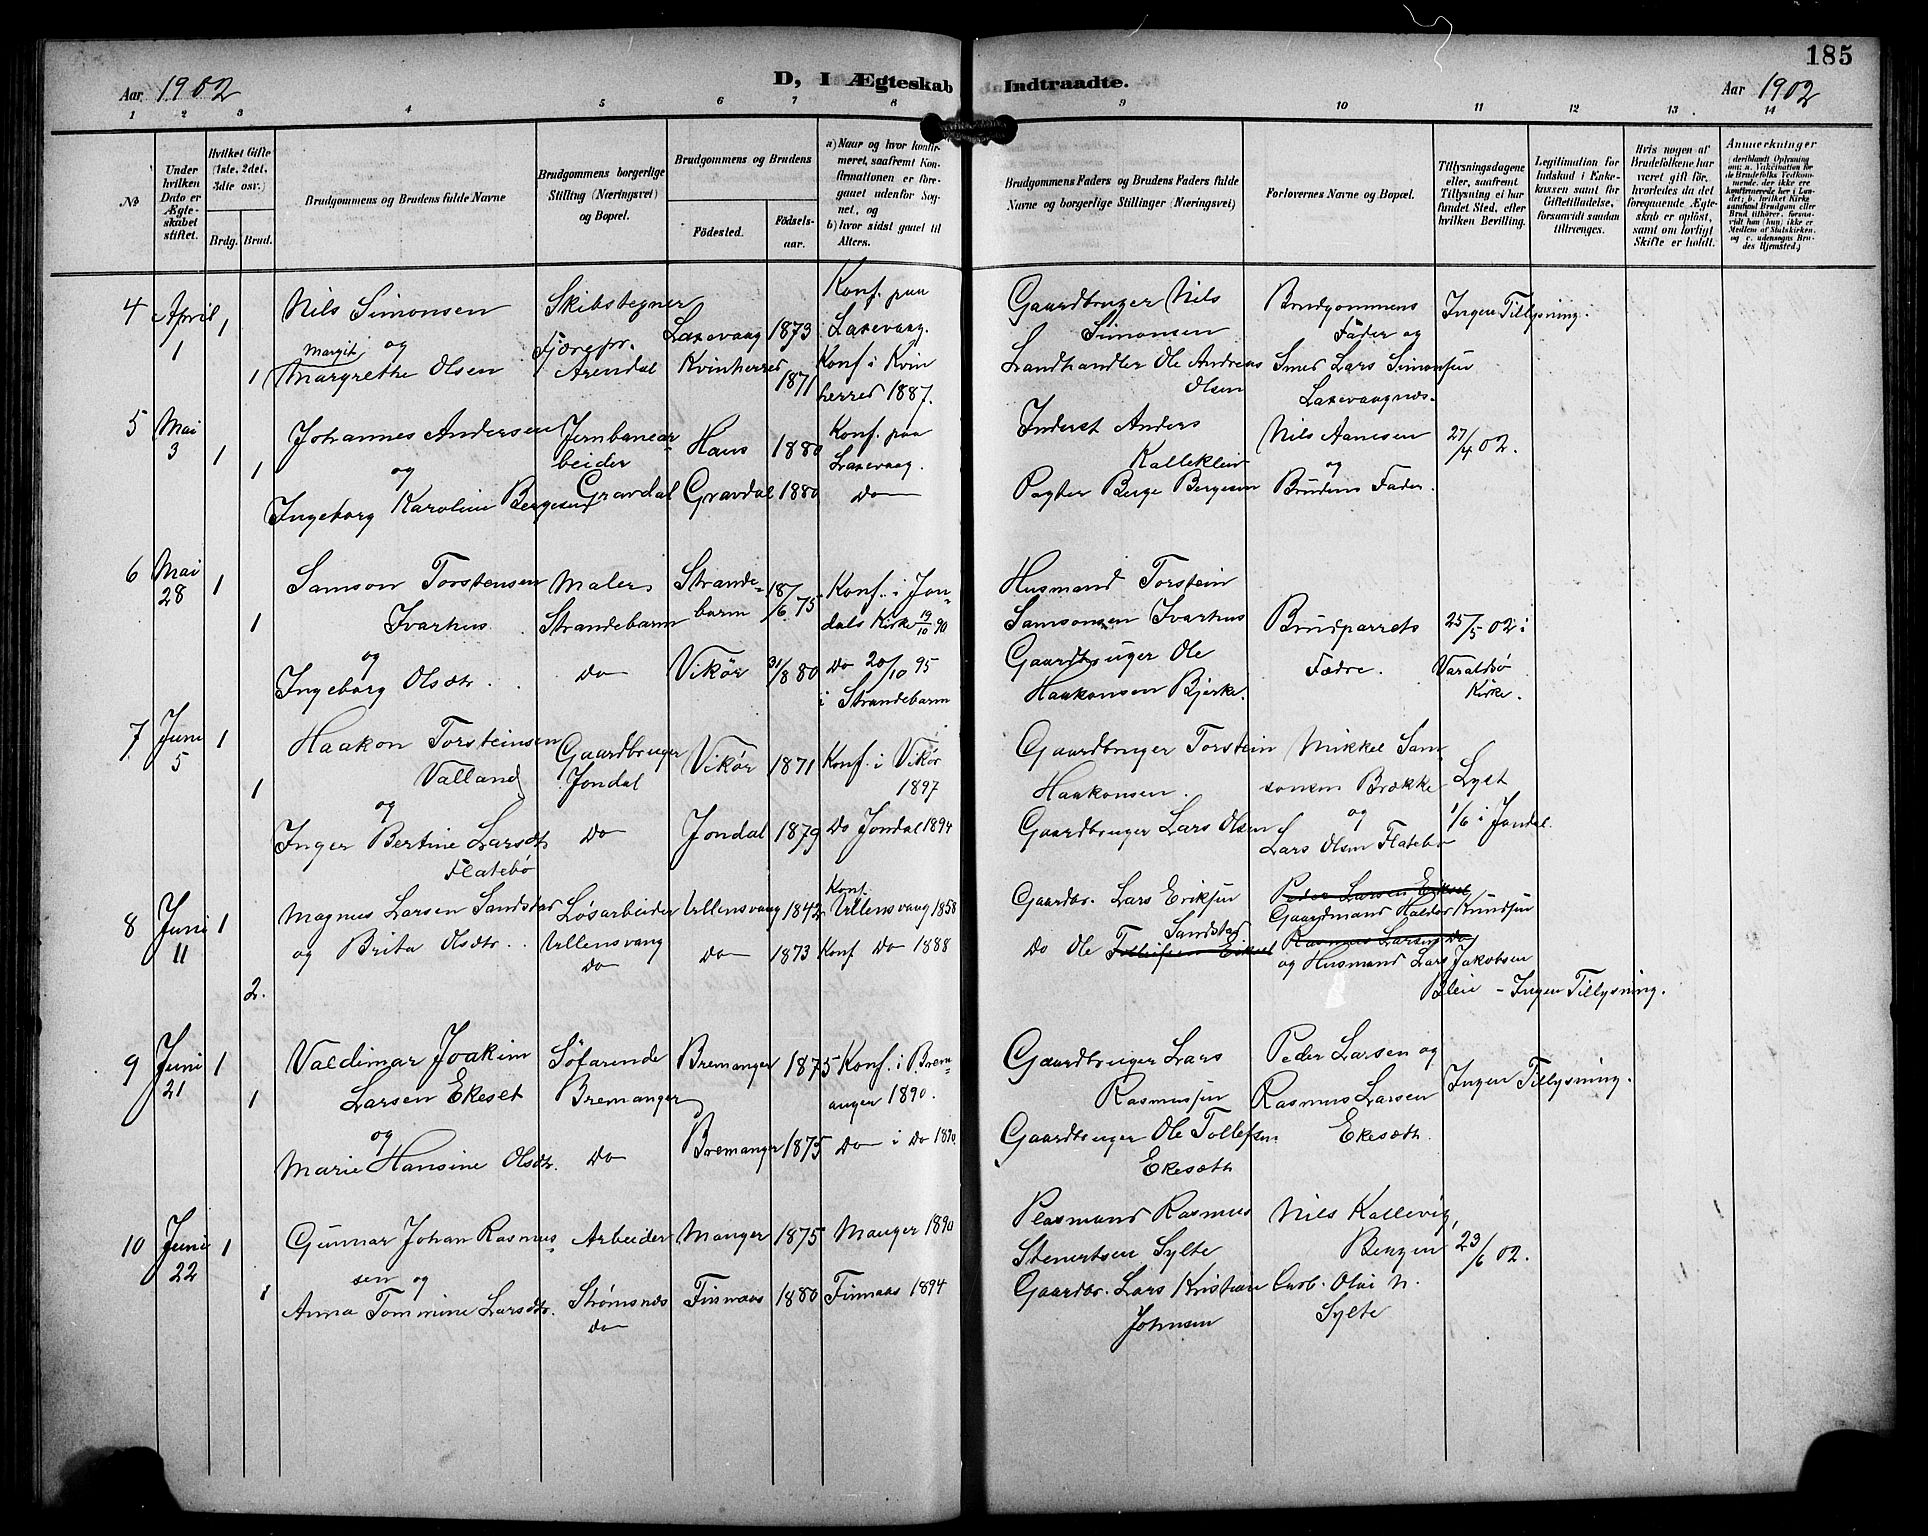 185
Aar 1902
D, I Ægteskab Indtraadte.
Aar 1902
1 2 3 4 5 6 7 8 9 10 11 12 13 14
No
Under hvilken Dato er Ægteskabet stiftet.
Hvilket Gifte (1ste, 2det, 3die osv.)
Brdg. Brud.
Brudgommens og Brudens fulde Navne
Brudgommens borgerlige Stilling (Næringsvei) og Bopæl.
Brudgommens og Brudens
Födested.
Födselsaar.
a) Naar og hvor konfirmeret, saafremt Konfirmationen er foregaaet udenfor Sognet, og
b) hvor sidst gaaet til Alters.
Brudgommens Faders og Brudens Faders fulde Navne og borgerlige Stillinger (Næringsvei)
Forlovernes Navne og Bopæl.
Tillysningsdagene eller, saafremt Tillysning ei har fundet Sted, efter hvilken Bevilling.
Legitimation for Indskud i Enkekassen samt for Giftetilladelse, forsaavidt saadan tiltrænges.
Hvis nogen af Brudefolkene har været gift för, hvorledes da det foregaaende Ægteskab er oplöst, samt om lovligt Skifte er holdt.
Anmerkninger
4 April 1 1 Nils Simonsen Skibstegner Laxevaag 1873 Konf. paa Laxevaag. Gaardbruger Nils Simonsen Brudgommens Fader og Ingen Tillysning.
og
Margit
1 Margrethe Olsen Arendal Kvinherred 1871 Konf. i Kvinherred 1887. Landhandler Ole Andreas Olsen Smed Lars Simonsen Laxevaagnæs.
5 Mai 3 1 Johannes Andersen Jernbanearbeider Haus 1880 Konf. paa Laxevaag. Inderst Anders Kalleklein Nils Aanesen 27/4 02.
1 og og
Ingeborg Karoline Bergesen Gravdal Gravdal 1880 do Pagter Berge Bergesen Brudens Fader.
6 Mai 28 1 Samson Torstensen Ivarhus Maler Strandebarm Strandebarm 18/6 75 Konf. i Jondals Kirke 19/10 90 Husmand Torstein Samsonsen Ivarhus Brudparrets Fædre. 25/5 02 i Varaldsø Kirke.
1 og
Ingeborg Olsdtr. do Vikør 31/8 80 do 20/10 95 i Strandebarm Gaardbruger Ole Haakonsen Bjerke.
7 Juni 5 1 Haakon Torsteinsen Valland Gaardbruger Jondal Vikør 1871 Konf. i Vikør 1897 Gaardbruger Torstein Haakonsen. Mikkel Samsonsen Brække Lyst 1/6 i Jondal.
1 og og
Inger Bertine Larsdtr Flatebø do Jondal 1879 do Jondal 1894 Gaardbruger Lars Olsen Lars Olsen Flatebø
8 Juni 11 1 Magnus Larsen Sandstad Løsarbeider Ullensvang Ullensvang 1842 Konf. Ullensvang 1858 Gaardbr. Lars Eriksen Sandstad Peder Larsen Ekeset
Gaardmand Haldor Knudsen
2. og Brita Olsdtr. do do 1873 Konf do 1888 do Ole Tollefsen Ekeset Rasmus Larsen do
og Husmand Lars Jakobsen
Bleie - Ingen Tillysning.
9 Juni 21 1 Valdimar Joakim Larsen Ekeset Søfarende Bremanger Bremanger 1875 Konf. i Bremanger 1890. Gaardbruger Lars Rasmussen Peder Larsen og Rasmus Larsen Ekesæth. Ingen Tillysning.
1 og
Marie Hansine Olsdtr. do Bremanger 1875 do i do 1890. Gaardbruger Ole Tollefsen Ekesæth
10 Juni 22 1 Gunnar Johan Rasmussen Arbeider Manger 1875 Manger 1890 Plasmand Rasmus Stenertsen Sylte Nils Kallevig, Bergen 23/6 02.
1 og
Anna Tommine Larsdtr. Strømsnæs do Finnaas 1880 Finnaas 1894 Gaardbr. Lars Kristian Johnsen Olai N. Sylte